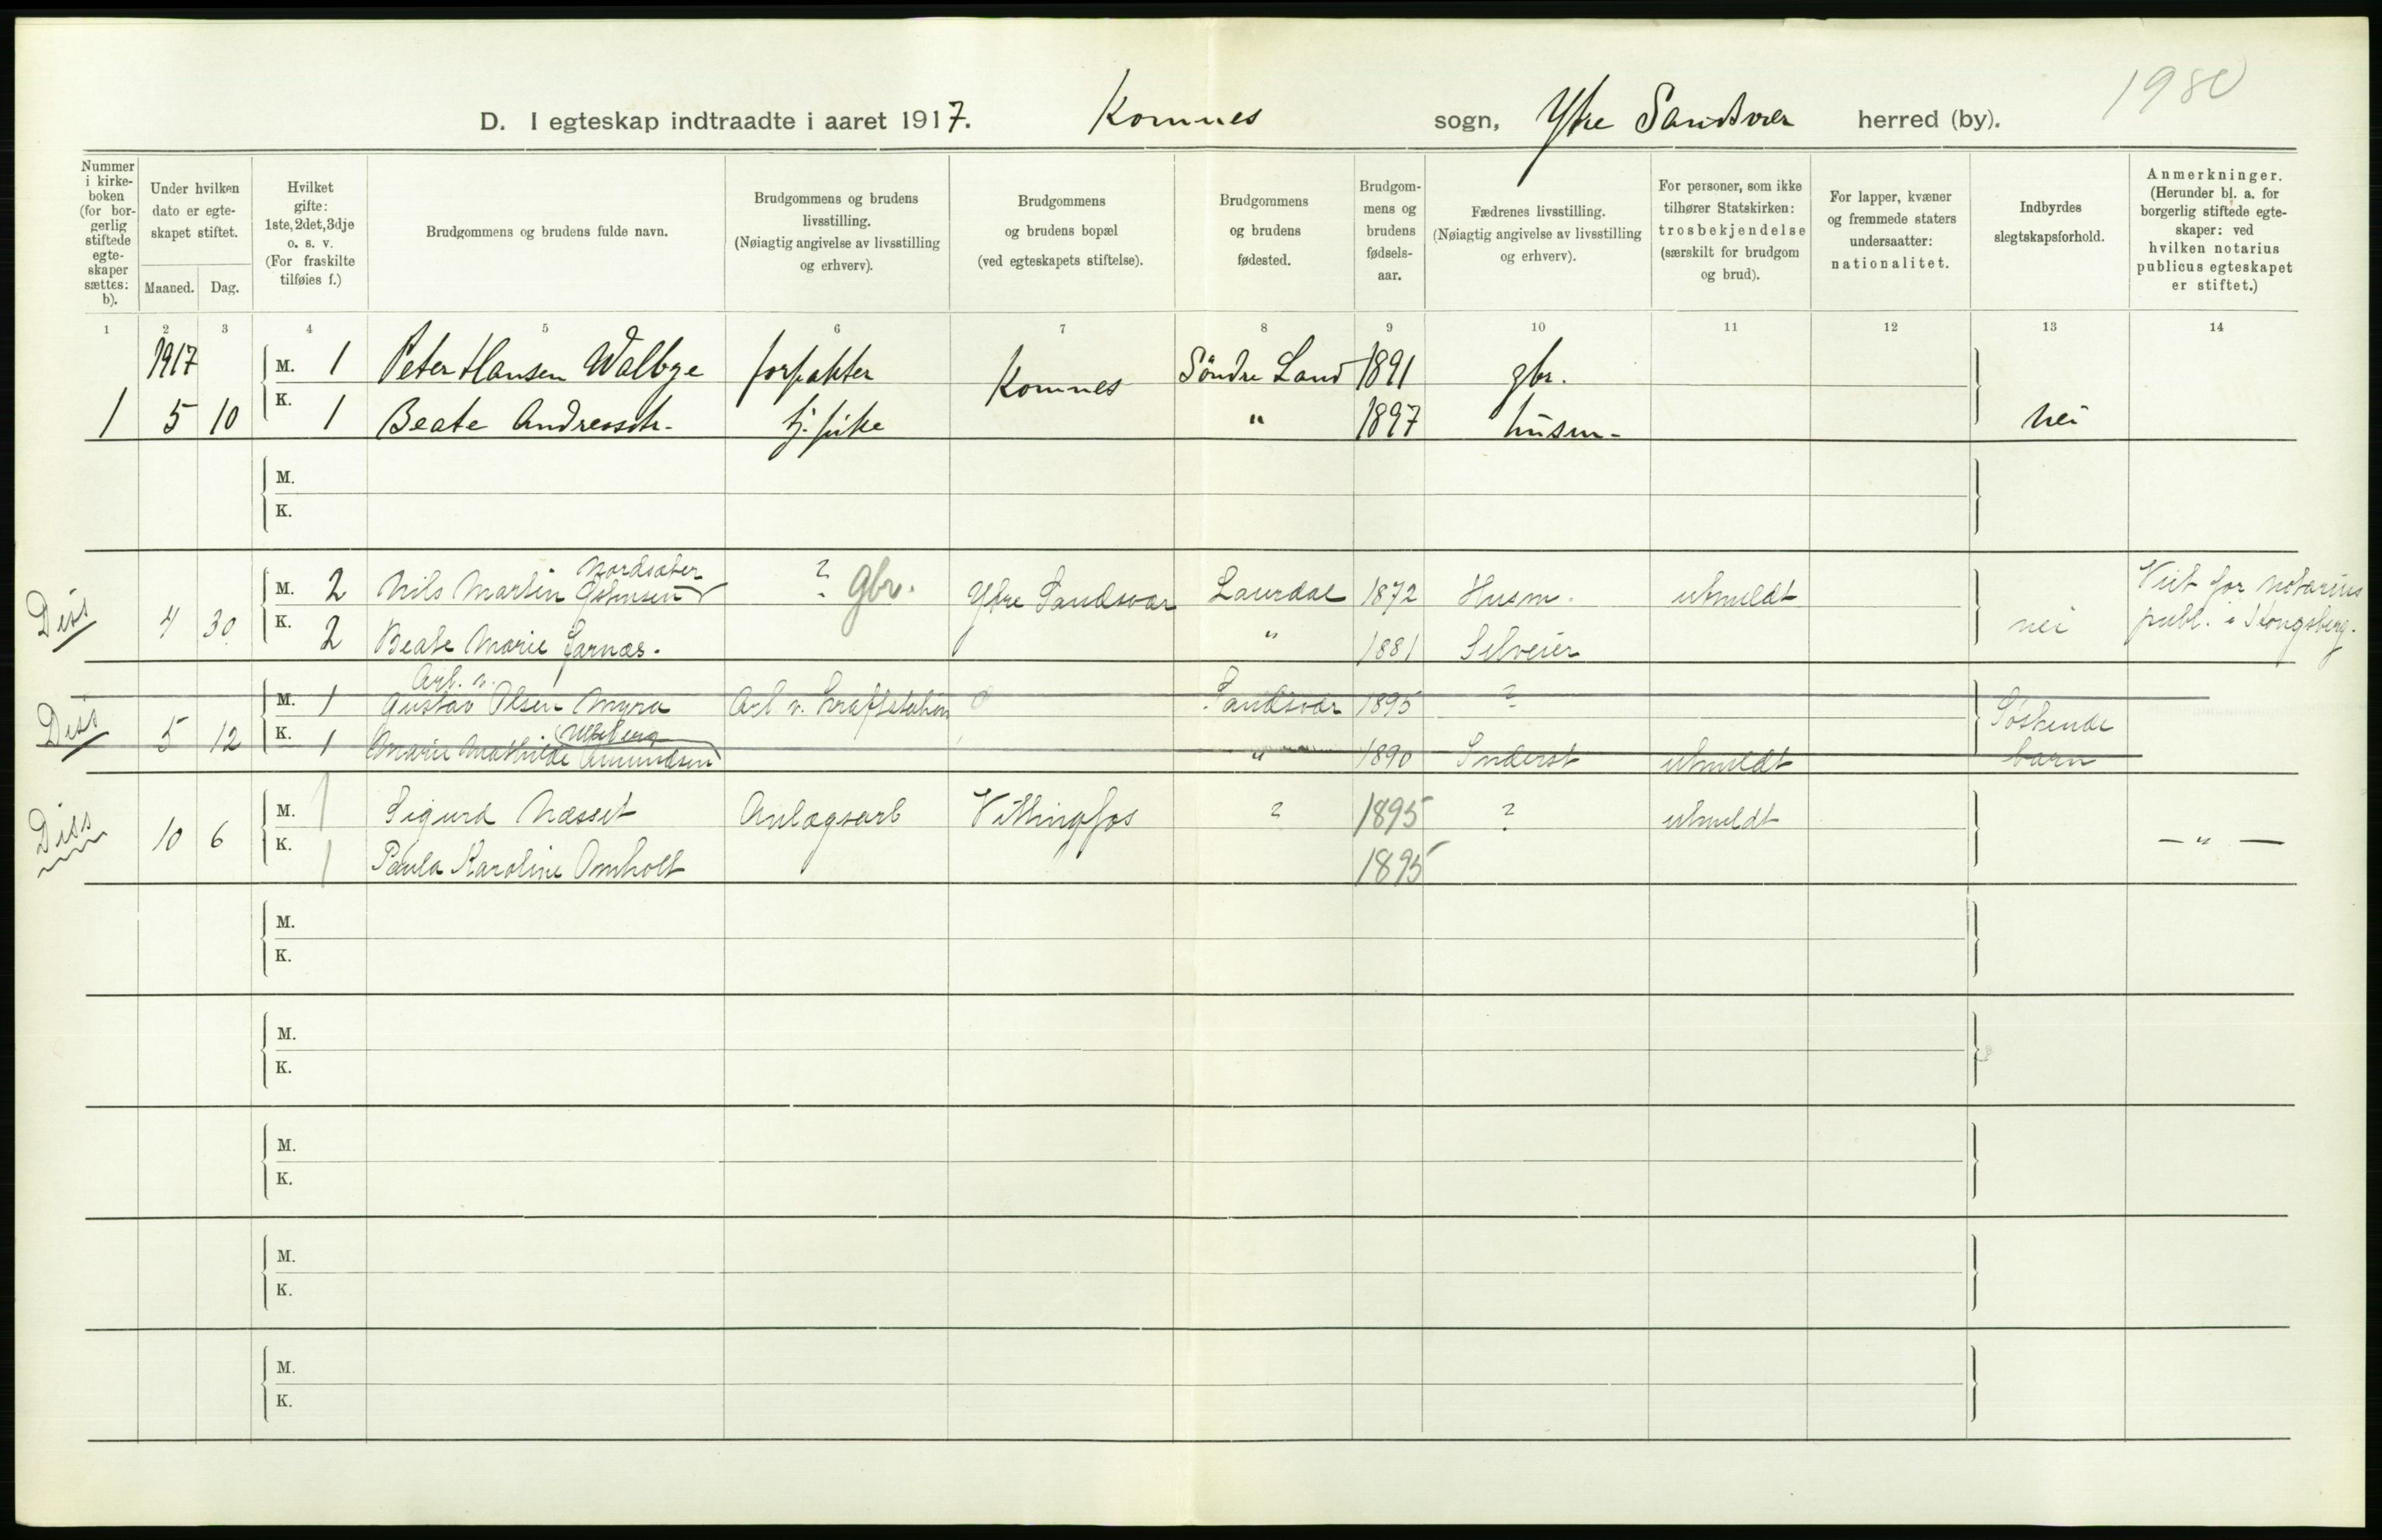 1980
D. I egteskap indtraadte i aaret 1917. Komnes sogn, Ytre Sandsvær herred (by).
Nummer i kirke-boken (for bor-gerlig stiftede egte-skaper sættes: b).
Under hvilken dato er egte-skapet stiftet.
Maaned. Dag.
Hvilket gifte: 1ste, 2det, 3dje o. s. v. (For fraskilte tilføies f.)
Brudgommens og brudens fulde navn.
Brudgommens og brudens livsstilling. (Nøiagtig angivelse av livsstilling og erhverv).
Brudgommens og brudens bopæl (ved egteskapets stiftelse).
Brudgommens og brudens fødested.
Brudgom-mens og brudens fødsels-aar.
Fædrenes livsstilling. (Nøiagtig angivelse av livsstilling og erhverv).
For personer, som ikke tilhører Statskirken: trosbekjendelse (særskilt for brudgom og brud).
For lapper, kvæner og fremmede staters undersaatter: nationalitet.
Indbyrdes slegtskapsforhold.
Anmerkninger. (Herunder bl. a. for borgerlig stiftede egte-skaper: ved hvilken notarius publicus egteskapet er stiftet.)
1 2 3 4 5 6 7 8 9 10 11 12 13 14
1917 M. 1 Peter Hansen Walbye forpakter Komnes Söndre Land 1891 gbr.
1 5 10 K. 1 Beate Andreasdtr. tj. pike " 1897 husm. nei
M.
K.
Nordsæter
Diss M. 2 Nils Martin Johnsen ? gbr. Ytre Sandsvær Laurdal 1872 Husm. utmeldt Viet for notarius
4 30 K. 2 Beate Marie Jarnæs. " 1881 Selveier nei publ. i Kongsberg.
Arb. v.
Diss M. 1 Gustav Olsen Myra Arb v. kraftstation Sandsvær 1895 ? Søskende
5 12 K. 1 Marie Mathilde Amundsen " 1890 Inderst utmeldt barn
Diss M. 1 Sigurd Næsset Anlægsarb Vittingfos ? 1895 ? utmeldt
10 6 K. 1 Paula Karoline Omholt 1895 — " —
M.
K.
M.
K.
M.
K.
M.
K.
M.
K.